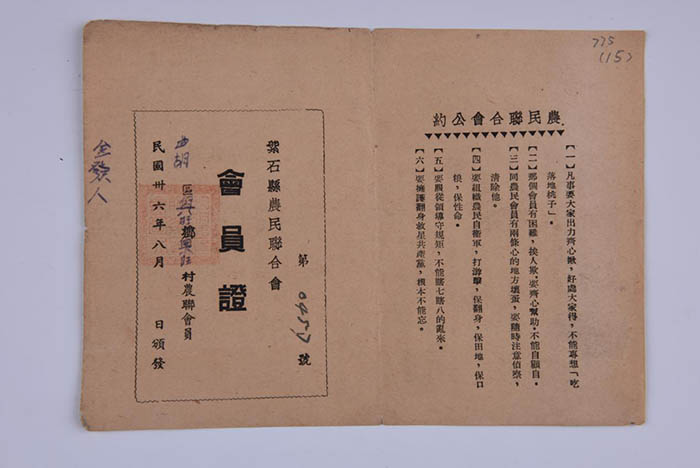 775
(15)
農民聯合會公約
【一】凡事要大家出力齊心瞅,好處大家得,不能專想「吃
落地桃子」。
【二】那個會員有困難,挨人欺,要齊心幫助,不能自顧自。
【三】同農民會員有兩條心的地方壞蛋,要隨時注意偵察,
清除他。
【四】要組織農民自衛軍,打游擊,保翻身,保田地,保口
糧,保性命。
【五】要服從領導守規矩,不能瞎七瞎八的亂來。
【六】要擁護翻身救星共產黨,根本不能忘。
第 號
紫石縣農民聯合會
會員證
胡區興旺鄉興旺村農聯會員
民國卅六年八月 日頒發